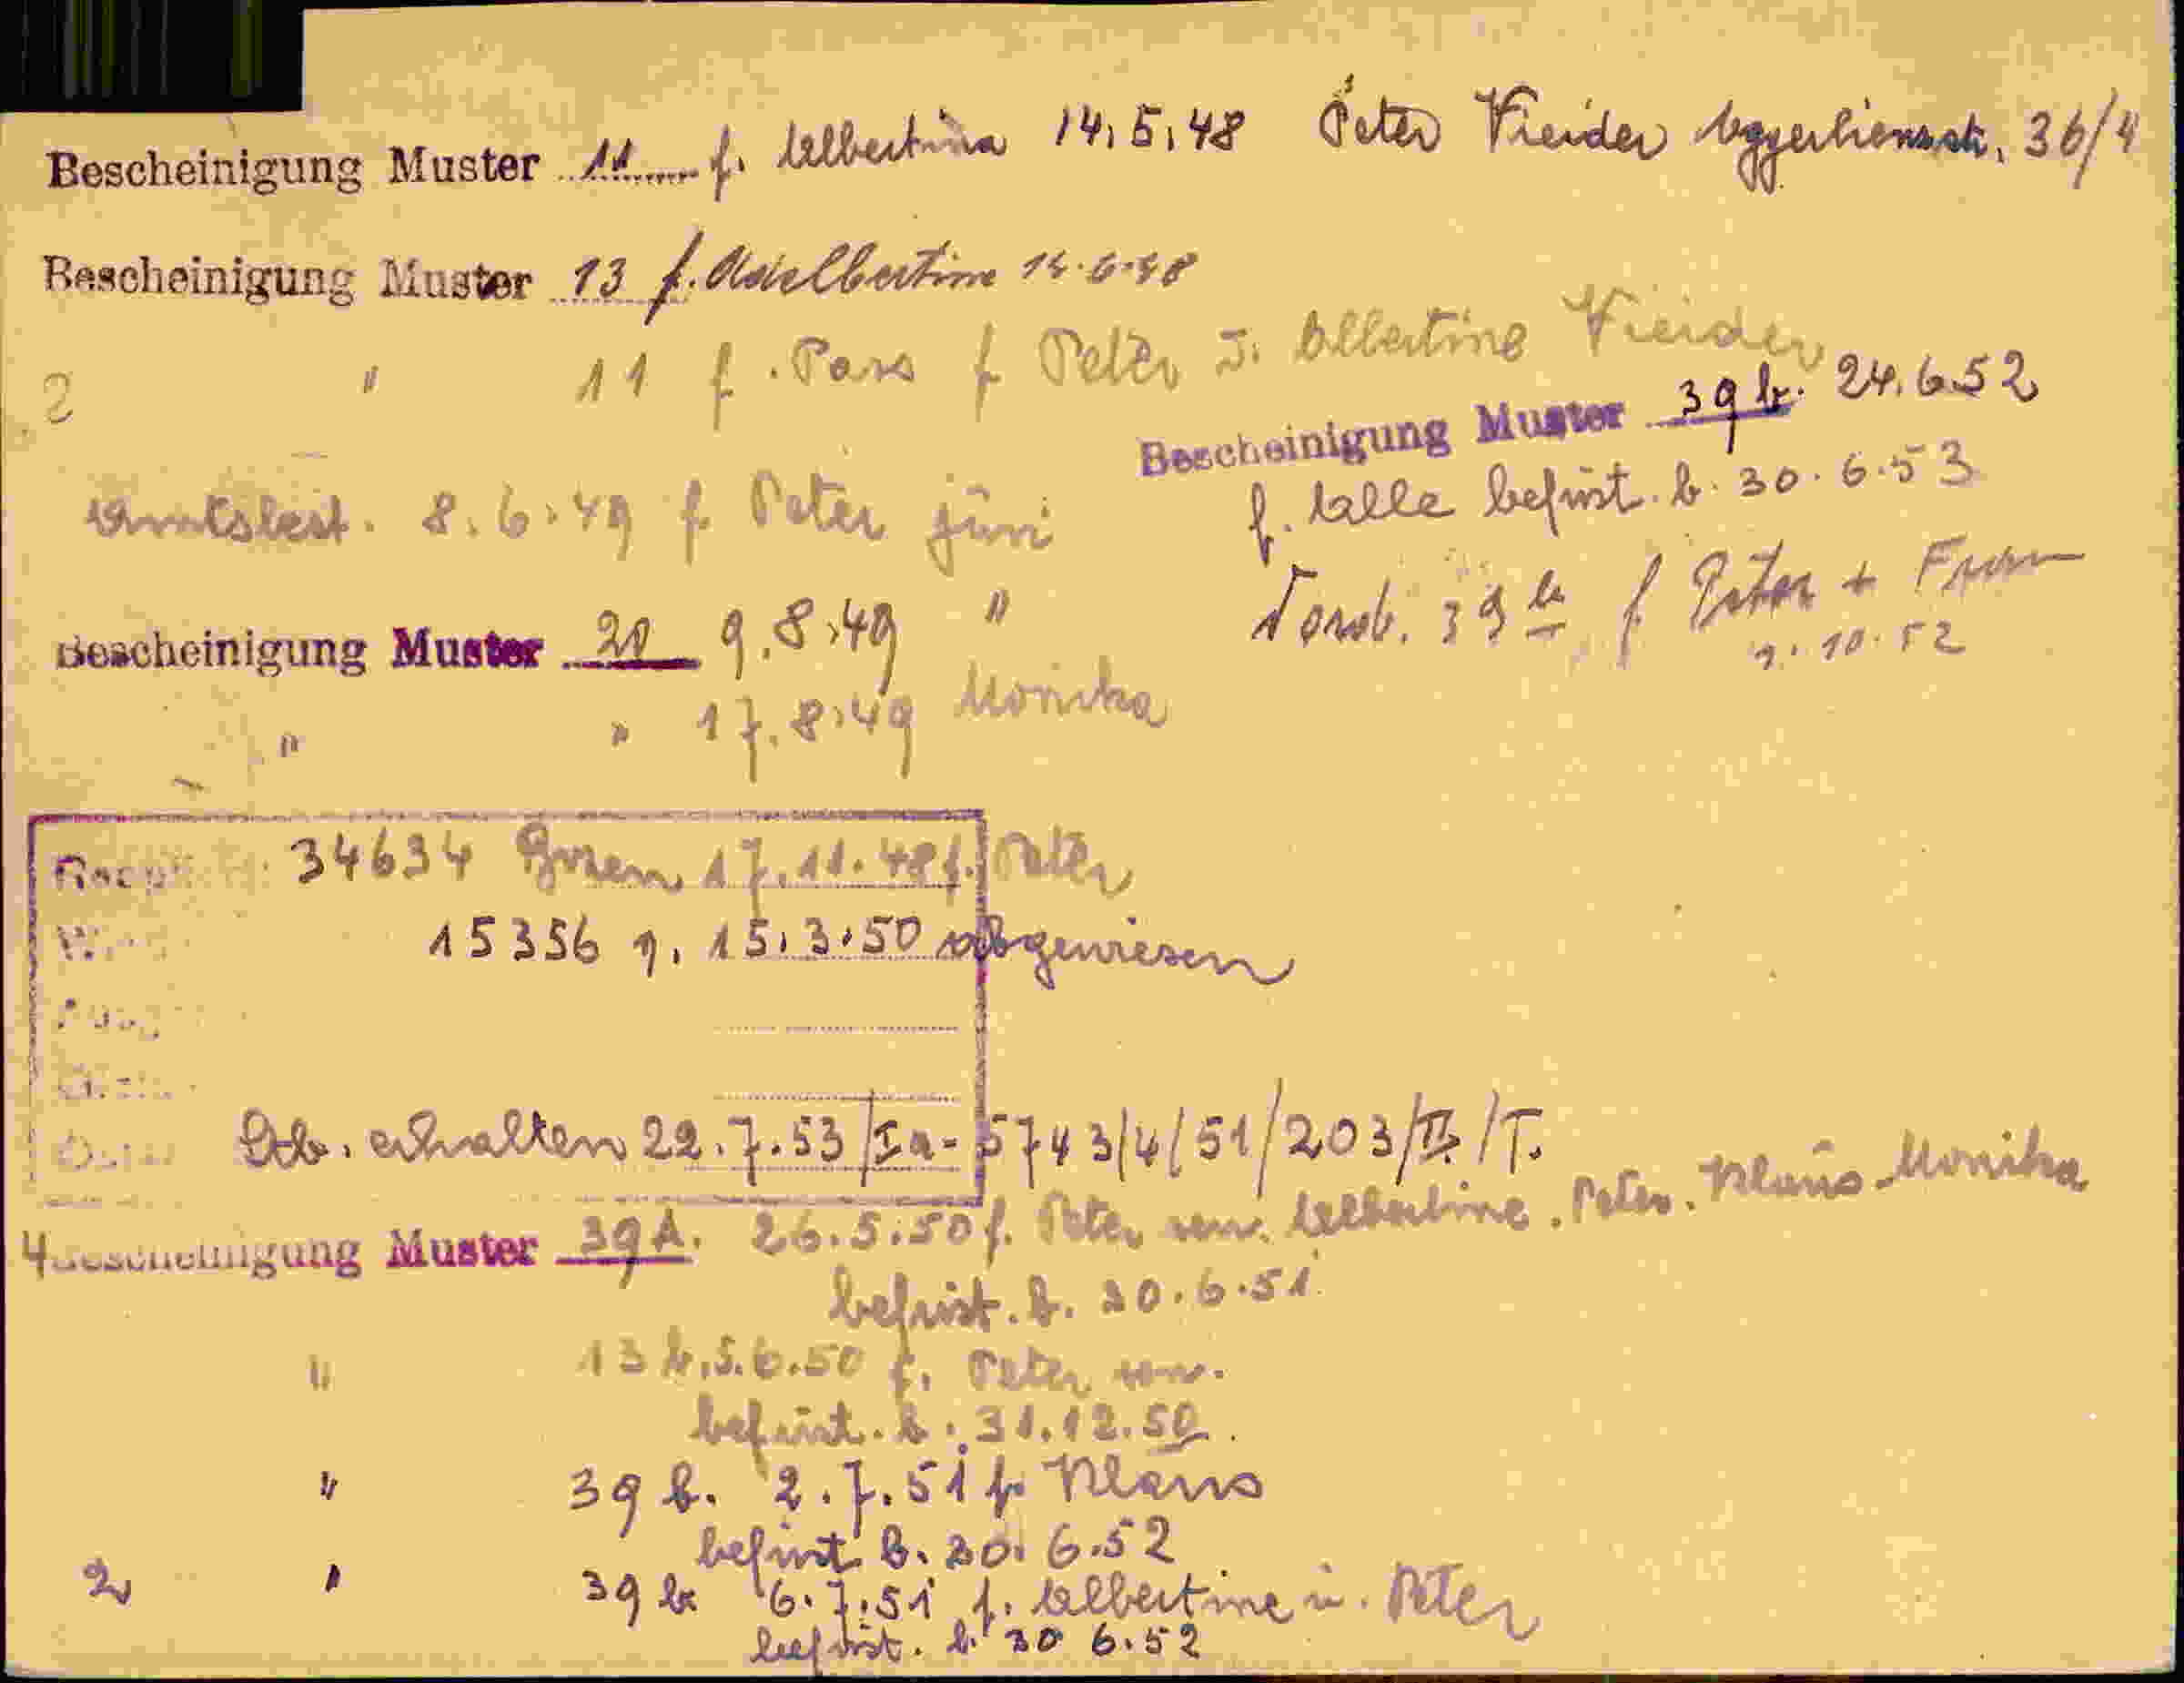 Bescheinigung Muster 11 f. Albertina 14.5.48 Peter Vieider Eggerlienzstr. 36/4
Bescheinigung Muster 13 f. Adelbertine 14.6.48
2 " 11 f. Pass f Peter u. Albertine Vieider
Bescheinigung Muster 39 b. 24.6.52
f. Alle befrist. b. 30.6.53
Amtsbest. 8.6.49 f Peter jun
39 b f Peter + Frau
9.10.52
Bescheinigung Muster 20 9.8.49 "
" " 17.8.49 Monika
34634 Bozen 17.11.48 f. Peter
15356 15.3.50 abgewiesen
Stb. erhalten 22.7.53/Ia-5743/4/51/203/II/T.
4 Bescheinigung Muster 39A. 26.5.50 f. Peter sen. Albertine. Peter. Klaus Monika
befrist. b. 30.6.51
" 13 b. 5.6.50 f. Peter sen.
befrist. b. 31.12.50.
" 39 b. 2.7.51 f. Klaus
befrist b. 30.6.52
2 " 39 b 6.7.51 f. Albertine u. Peter
befrist. b. 30 6.52